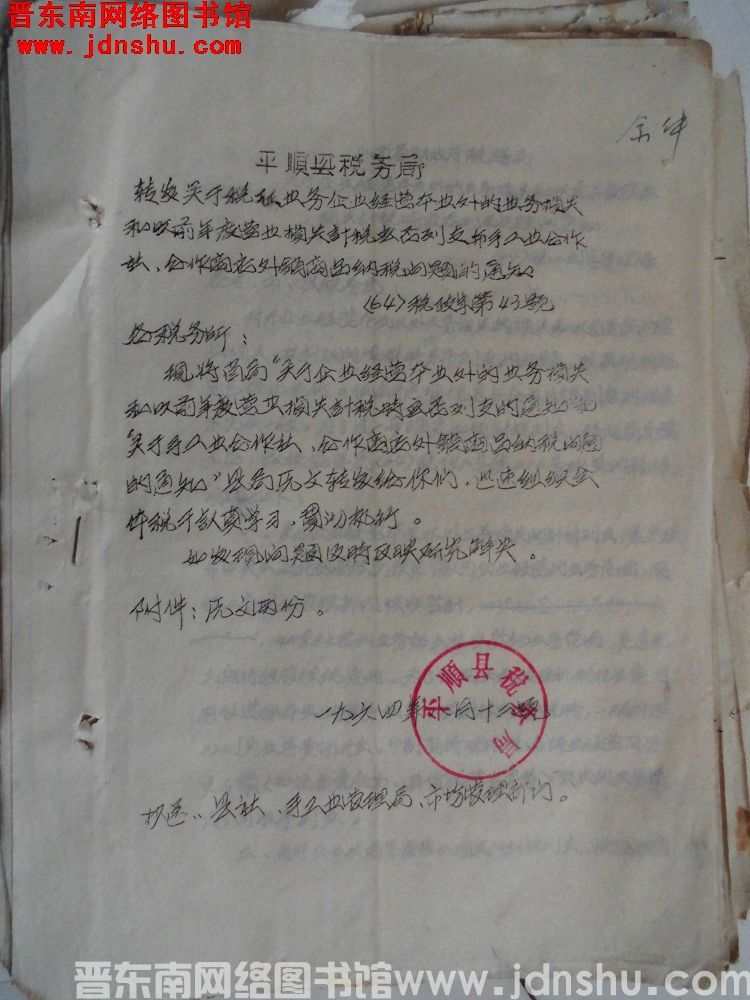 晋东南网络图书馆
www.jdnshu.com
平順县税务局
转发关于税征业务企业经营本业外的业务损失
和以前年度营业损失計税应否列支和手工业合作
社、合作商店外銷商品纳税问题的通知
(64)税政字第43号
各税务所：
现将省局"关于企业经营本业外的业务损失
和以前年度营业损失計税時应否列支的通知"和
"关于手工业合作社、合作商店外銷商品纳税问题
的通知"县局原文转发给你们，迅速组织全
体税干认真学习，贯彻执行。
如发现问题及時反映研究解决。
附件：原文两份。
一九六四年 月十二
平順县税务局
抄送：县社、手工业管理局、市场管理部门。
晋东南网络图书馆www.jdnshu.com